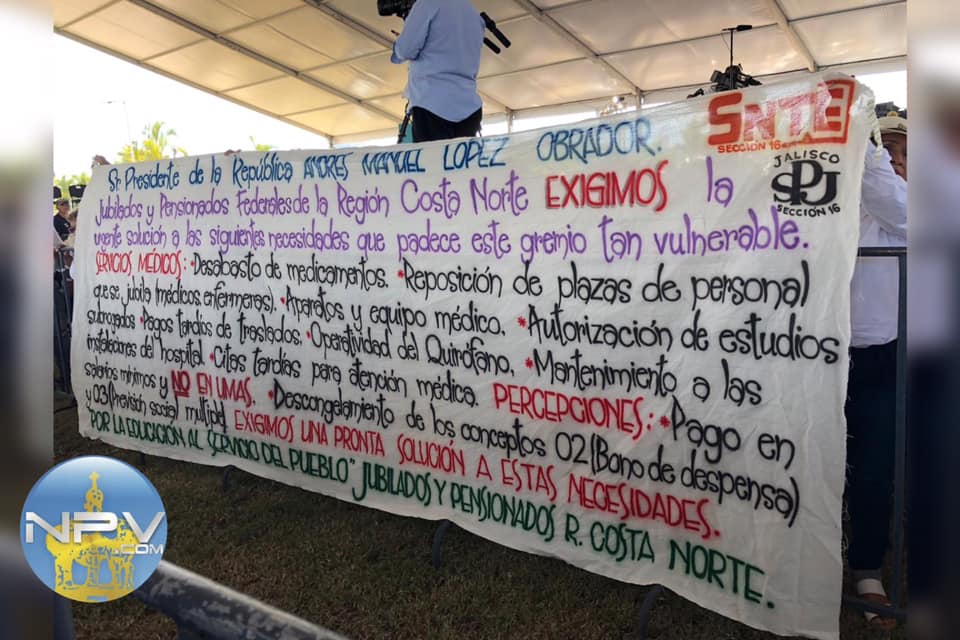 Sr. Presidente de la República ANDRES MANUEL LOPEZ OBRADOR.
Jubilados y Pensionados Federales de la Región Costa Norte EXIGIMOS la
urgente solución a las siguientes necesidades que padece este gremio tan vulnerable.
SERVICIOS MEDICOS: •Desabasto de medicamentos. •Reposición de plazas de personal
que se jubila (médicos, enfermeras). •Aparatos y equipo médico. •Autorización de estudios
subrogados •Pagos tardíos de traslados. •Operatividad del Quirófano. •Mantenimiento a las
instalaciones del hospital. •Citas tardías para atención médica. PERCEPCIONES: •Pago en
salarios mínimos y NO EN UMAS. •Descongelamiento de los conceptos 02 (Bono de despensa)
y 03 (Previsión social multiple) EXIGIMOS UNA PRONTA SOLUCIÓN A ESTAS NECESIDADES.
POR LA EDUCACIÓN AL SERVICIO DEL PUEBLO" JUBILADOS Y PENSIONADOS R. COSTA NORTE.
SNTE
SECCIÓN 16
JALISCO
SPJ
SECCIÓN 16
NPV
.COM